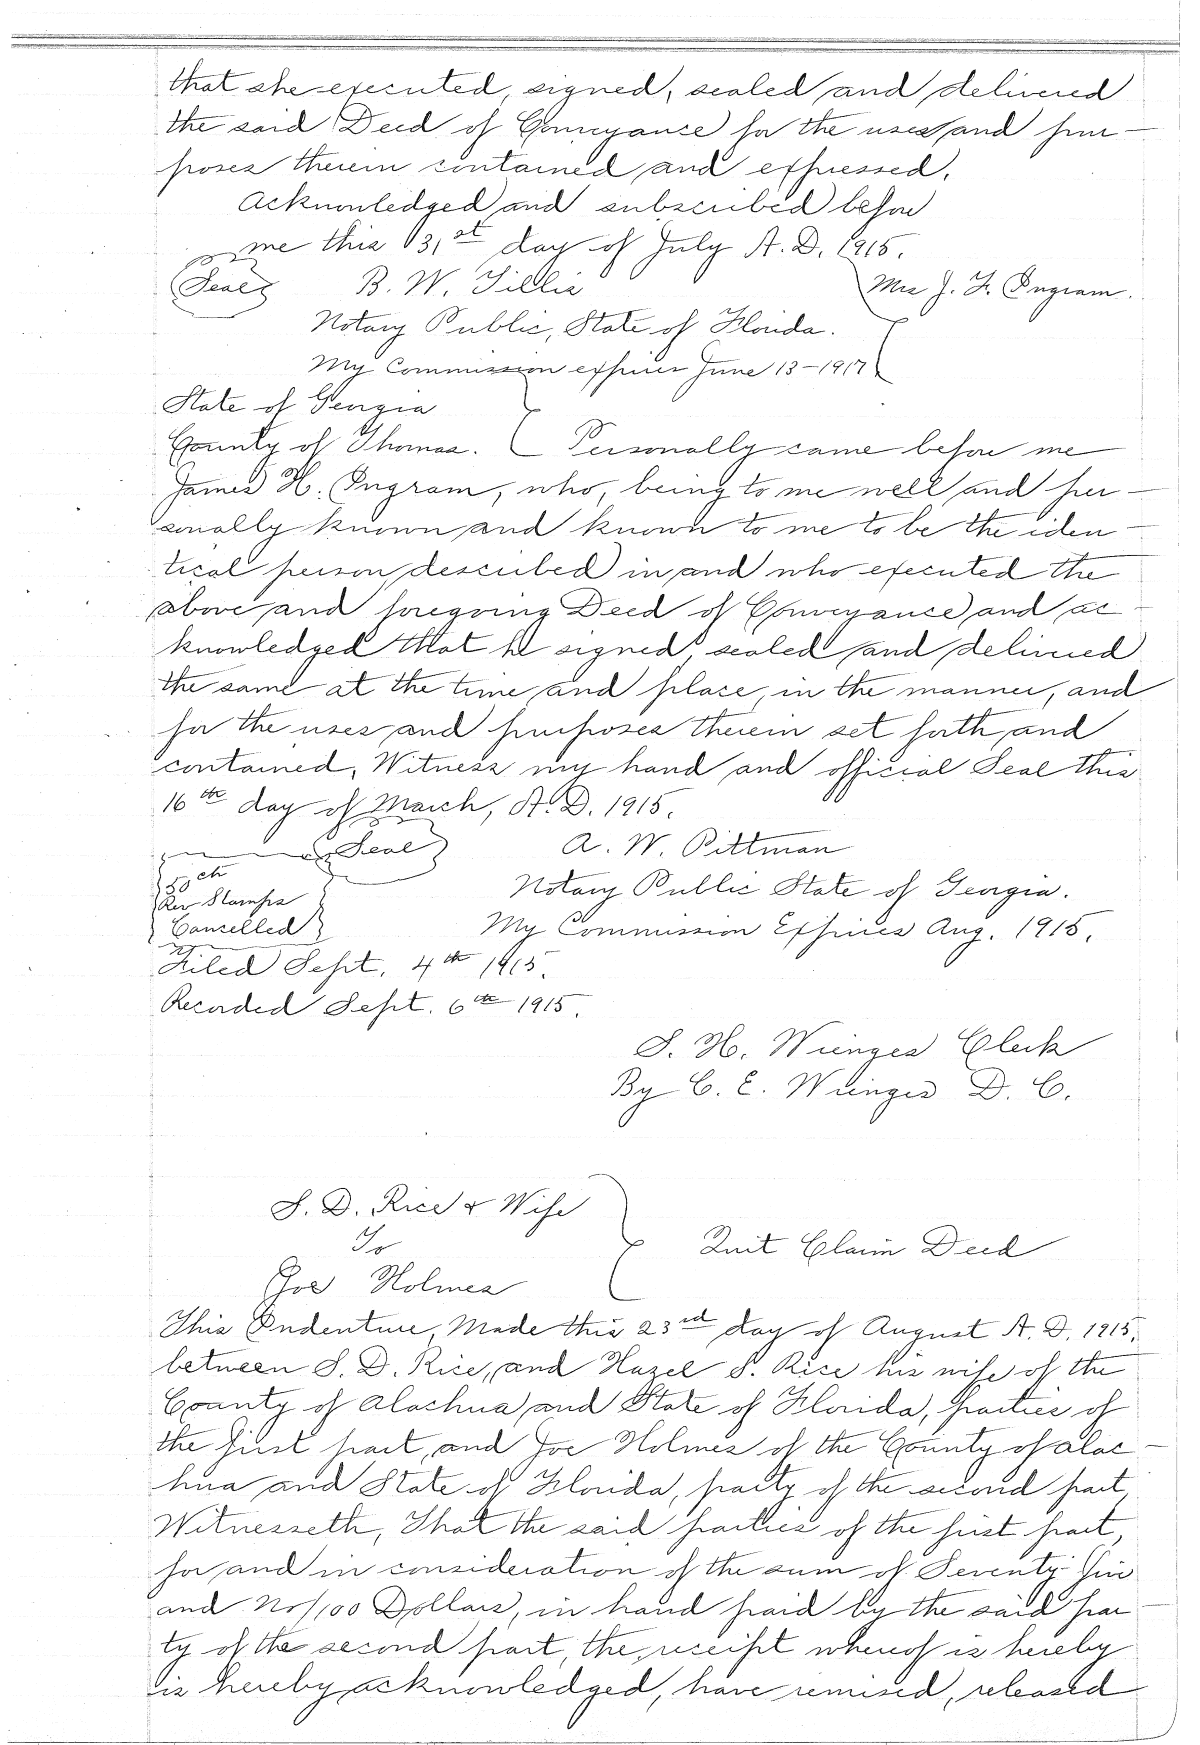 that she executed, signed, sealed and delivered
the said Deed of Conveyance for the uses and pur-
poses therein contained and expressed.
Acknowledged and subscribed before
me this 31st day of July A. D. 1915.
(Seal) B. W. Tillis Mrs J. H. Ingram.
Notary Public, State of Florida.
My Commission expires June 13-1917
State of Georgia
County of Thomas. Personally came before me
James H. Ingram, who, being to me well and per-
sonally known and known to me to be the iden-
tical person described in and who executed the
above and foregoing Deed of Conveyance and ac-
knowledged that he signed, sealed and delivered
the same at the time and place, in the manner, and
for the uses and purposes therein set forth and
contained, Witness my hand and official Seal this
16th day of March, A. D. 1915.
Seal A. W. Pittman
50 cts
Rev Stamps Notary Public State of Georgia.
Cancelled My Commission Expires Aug. 1915.
Filed Sept. 4th 1915.
Recorded Sept. 6th 1915.
S. H. Wienges Clerk
By C. E. Wienges D. C.
S. D. Rice & Wife
To Quit Claim Deed
Joe Holmes
This Indenture, Made this 23rd day of August A. D. 1915,
between S. D. Rice, and Hazel S. Rice his wife of the
County of Alachua and State of Florida, parties of
the first part, and Joe Holmes of the County of Alac-
hua and State of Florida, party of the second part,
Witnesseth, That the said parties of the first part,
for and in consideration of the sum of Seventy five
and no/100 Dollars, in hand paid by the said par-
ty of the second part, the receipt whereof is hereby
is hereby acknowledged, have remised, released